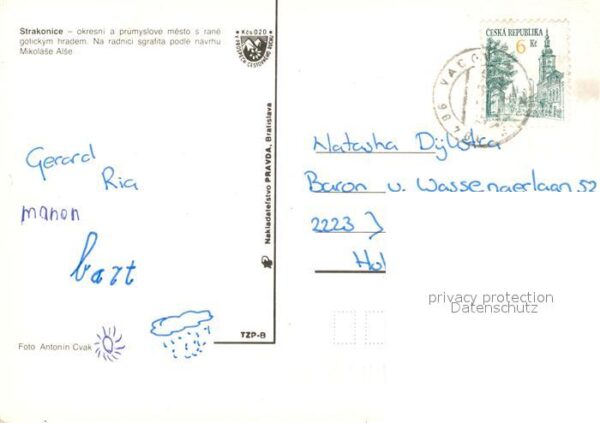 Strakonice – okresní a průmyslové město s raně
gotickým hradem. Na radnici sgrafita podle návrhu
Mikoláše Alše
Kčs 0,20
Gerard
Ria
manon
bart
Foto Antonín Cvak
Nakladateľstvo PRAVDA, Bratislava
TZP-B
ČESKÁ REPUBLIKA
6 Kč
Natasha Dijkstra
Baron v. Wassenaerlaan 52
2223 J
Hol
privacy protection
Datenschutz